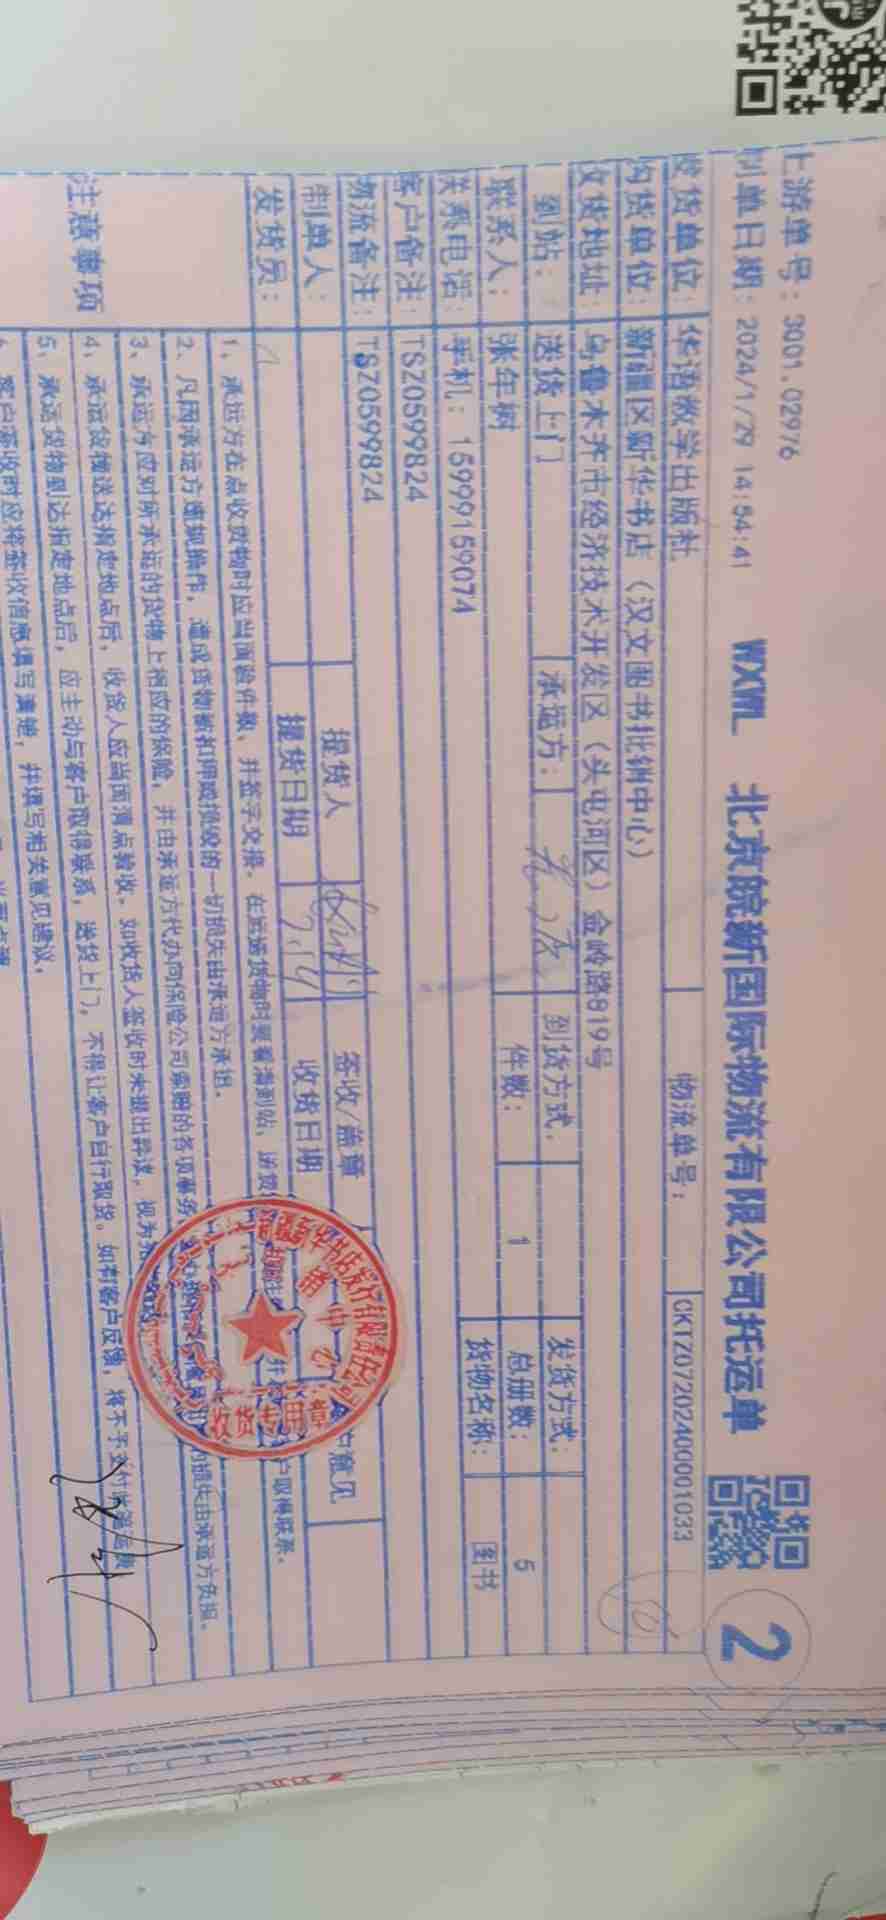 WXWL 北京皖新国际物流有限公司托运单
2
上游单号：3001.02976
制单日期：2024/1/29 14:54:41
物流单号：CKTZ0720240001033
发货单位：华语教学出版社
购货单位：新疆区新华书店（汉文图书批销中心）
收货地址：乌鲁木齐市经济技术开发区（头屯河区）金岭路819号
到站：送货上门 承运方： 到货方式： 发货方式：
联系人：张年树 件数：1 总册数：5
联系电话：手机：15999159074 货物名称：图书
客户备注：TSZ0599824
物流备注：TSZ0599824
制单人： 提货人 签收/盖章 客户意见
发货员： 提货日期 收货日期
注意事项
1、承运方在点收货物时应当面验件数，并签字交接。在运送货物时要看清到站，送货
户取得联系。
2、凡因承运方违规操作，造成货物被扣押或损毁的一切损失由承运方承担。
3、承运方应对所承运的货物上相应的保险，并由承运方代办向保险公司索赔的各项事务
的损失由承运方负担。
4、承运货物送达指定地点后，收货人应当面清点验收，如收货人签收时未提出异议，视为
5、承运货物到达指定地点后，应主动与客户取得联系，送货上门，不得让客户自行取货。如有客户反馈，将不予支付此笔运费
客户签收时应将签收信息填写清楚，并填写相关意见建议。
收货专用章